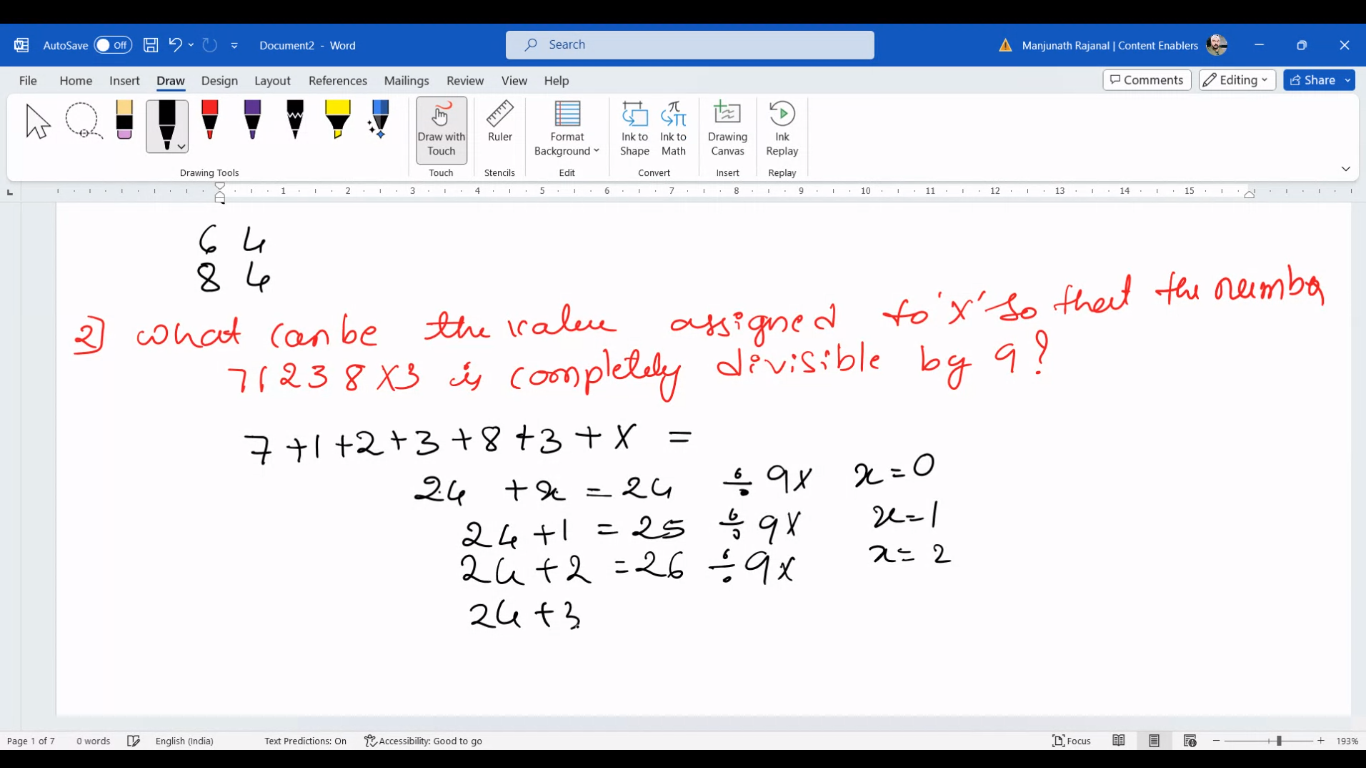 AutoSave Off Document2 - Word Search Manjunath Rajanal | Content Enablers
File Home Insert Draw Design Layout References Mailings Review View Help Comments Editing Share
Draw with Touch Ruler Format Background Ink to Shape Ink to Math Drawing Canvas Ink Replay
Drawing Tools Touch Stencils Edit Convert Insert Replay
1 2 3 4 5 6 7 8 9 10 11 12 13 14 15
6 4
8 4
2] What can be the value assigned to 'x' so that the number
71238X3 is completely divisible by 9?
7+1+2+3+8+3+X =
24 +x = 24 ÷ 9x x=0
24+1 = 25 ÷ 9x x=1
24+2 =26 ÷ 9x x= 2
24+3
Page 1 of 7 0 words English (India) Text Predictions: On Accessibility: Good to go Focus 193%